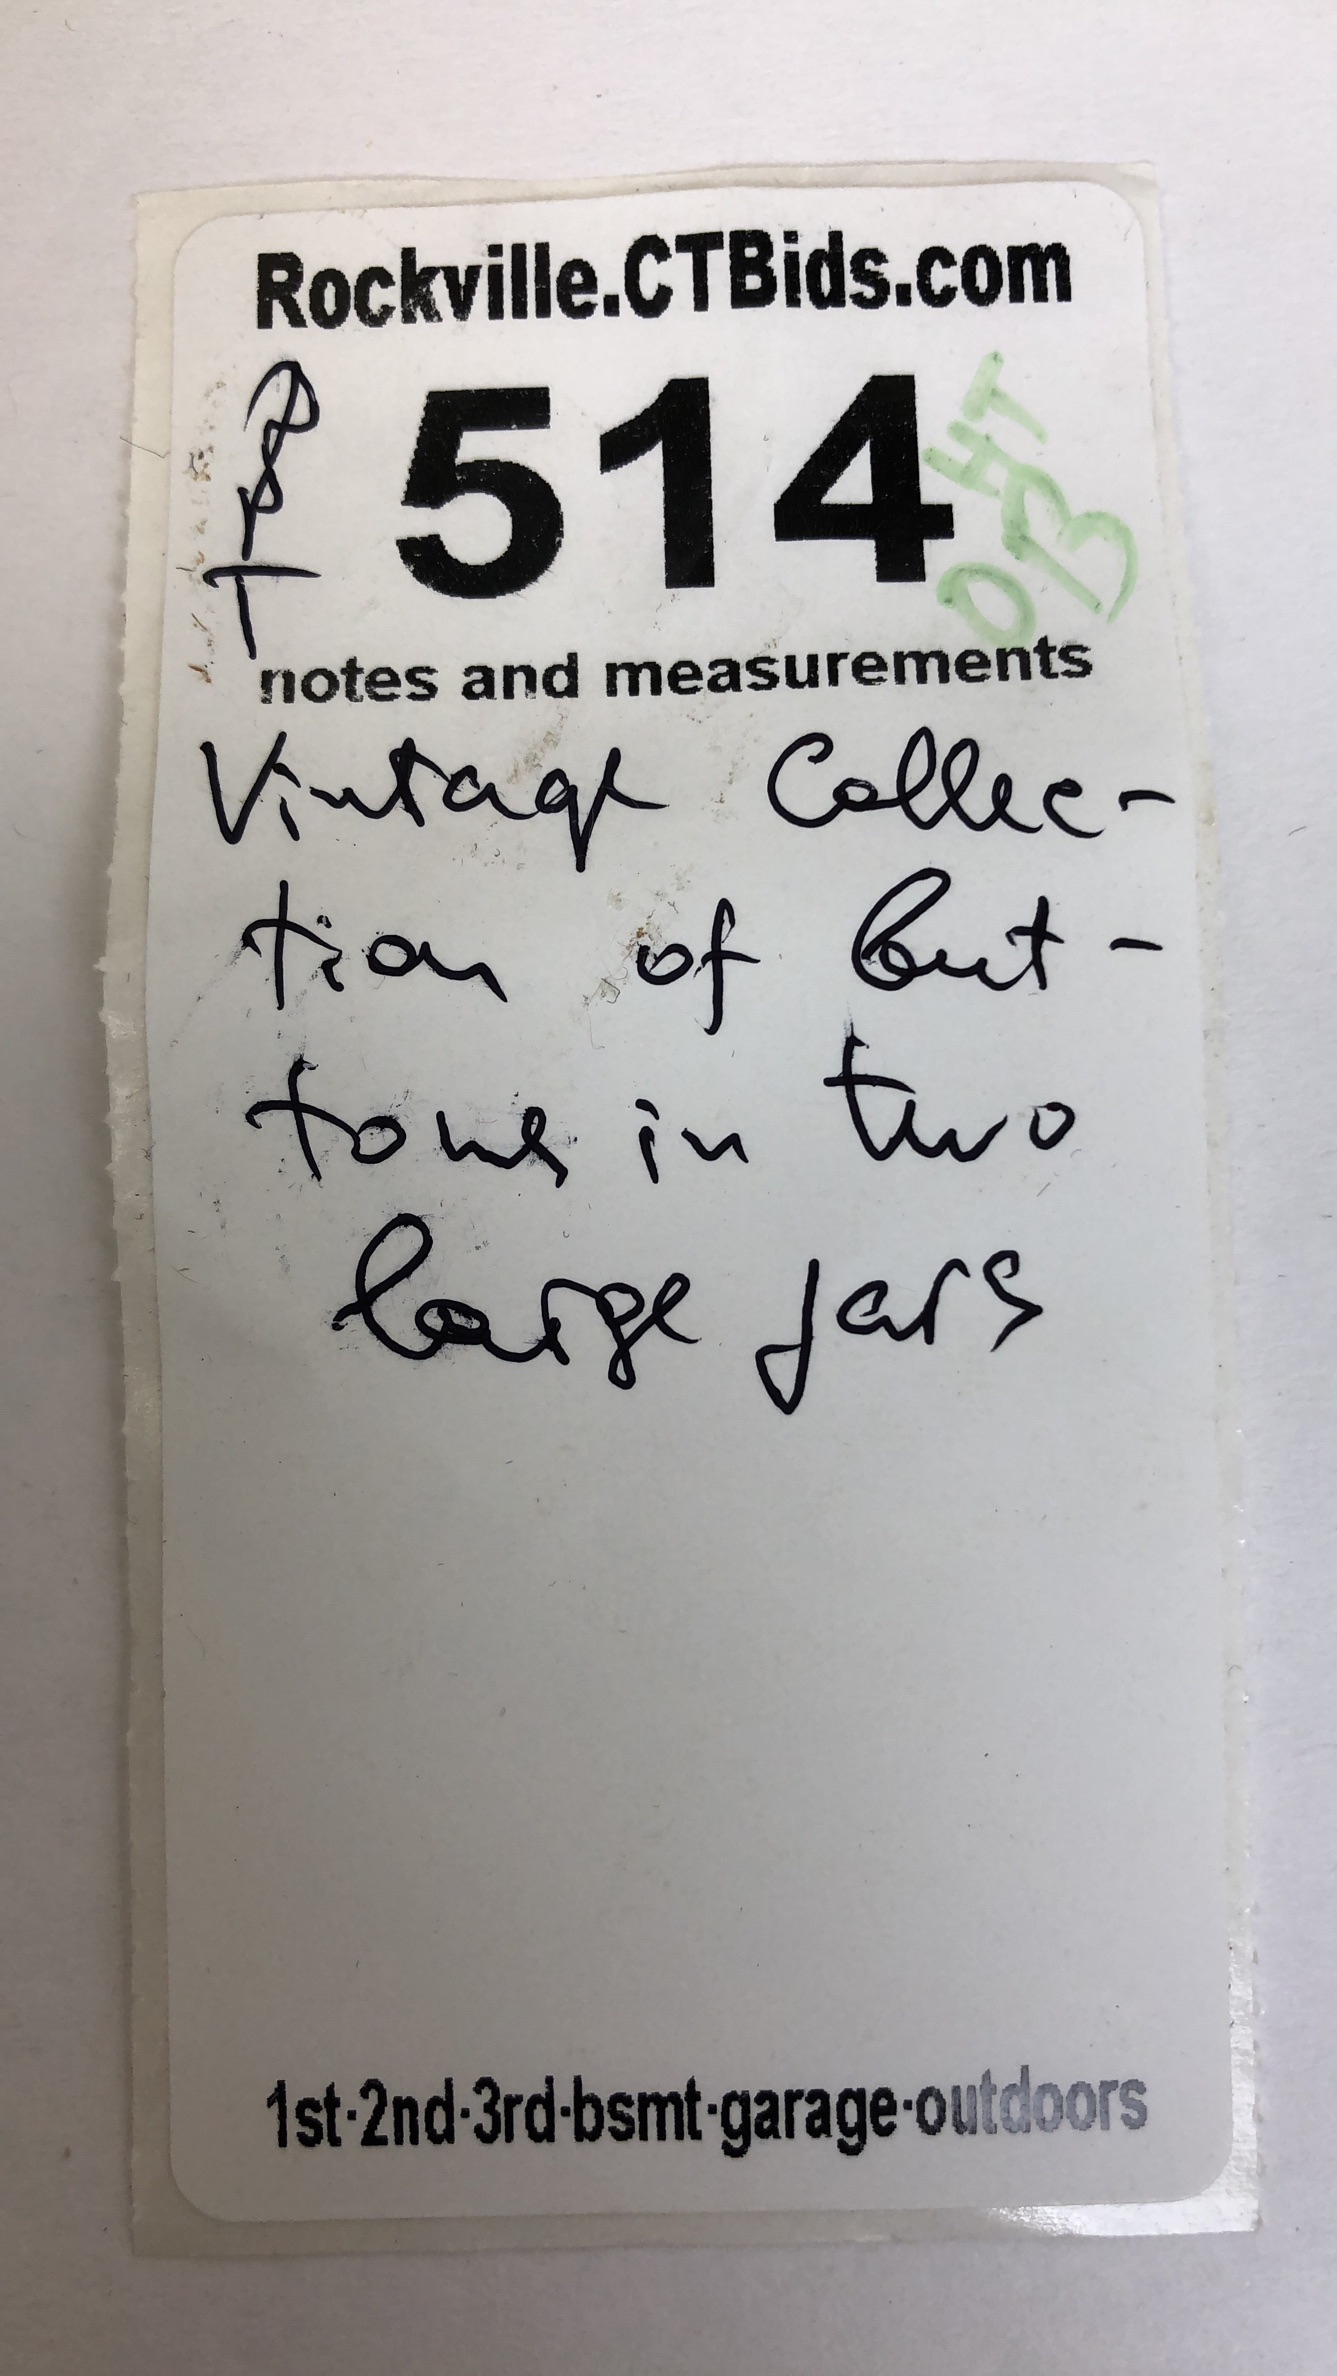 Rockville.CTBids.com
514
HT
OB
notes and measurements
Vintage Collec-
tion of but-
tons in two
large jars
1st·2nd·3rd·bsmt·garage·outdoors